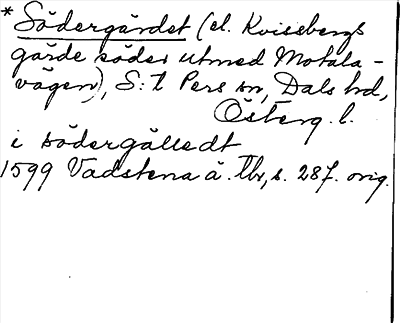 * Södergärdet (el. Kvissbergs
gärde söder utmed Motala-
vägen), S:t Pers sn, Dals hd,
Österg. l.
i södergälledt
1599 Vadstena ä. Tbr, s. 287. orig.